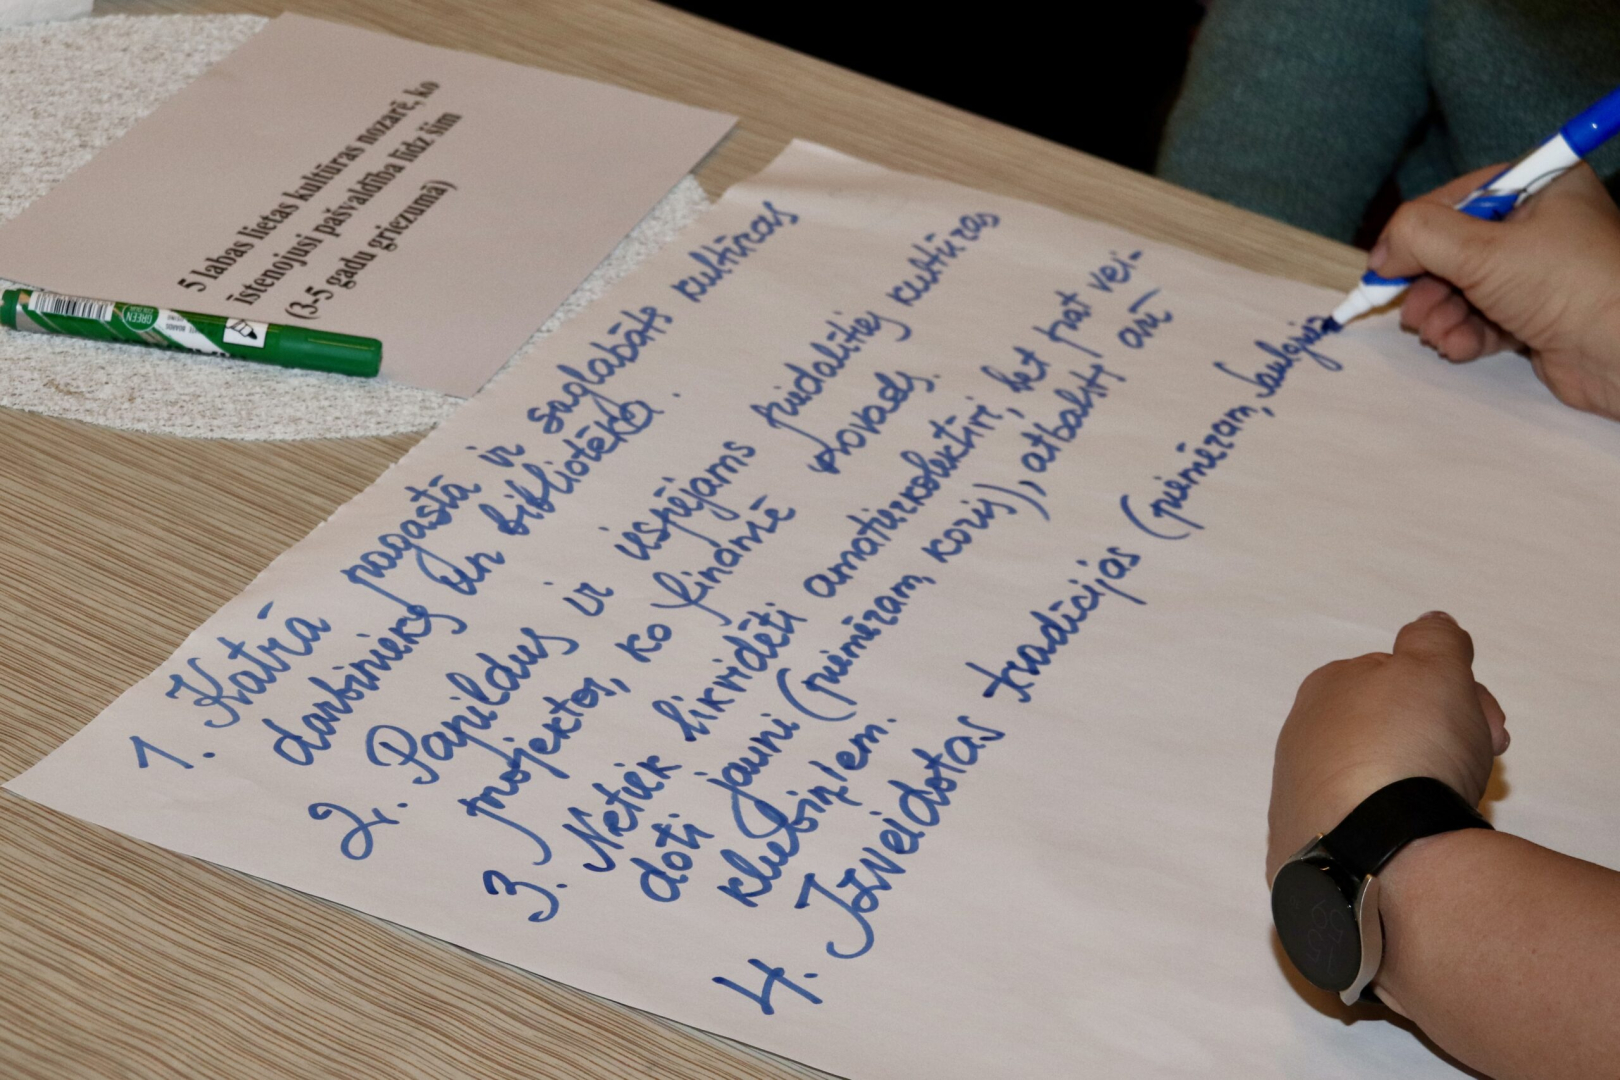 5 labas lietas kultūras nozarē, ko
īstenojusi pašvaldība līdz šim
(3-5 gadu griezumā)
GREEN
1. Katrā pagastā ir saglabāts kultūras
darbinieks un bibliotēka.
2. Papildus ir iespējams piedalīties kultūras
projektos, ko finansē novads.
3. Netiek likvidēti amatierkolektīvi, bet pat vei-
doti jauni (piemēram, koris), atbalsts arī
klubiņiem.
4. Izveidotas tradīcijas (piemēram,